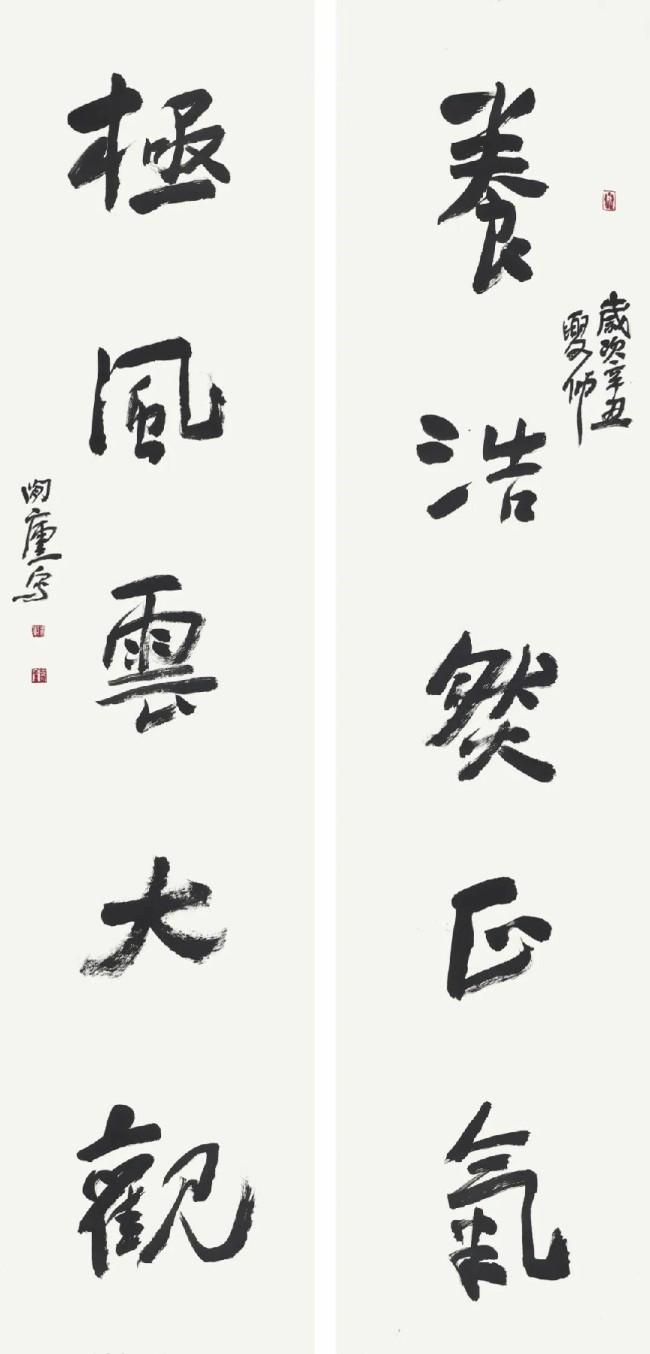 養浩然正氣
歲次辛丑
夏師
極風雲大觀
陶廬寫